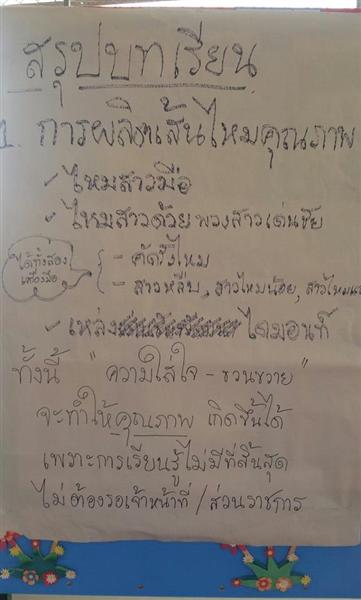 สรุปบทเรียน
1. การผลิตเส้นไหมคุณภาพ
- ไหมสาวมือ
- ไหมสาวด้วย พวงสาวเด่นชัย
ได้ทั้งสอง
เครื่องมือ
- คัดรังไหม
- สาวหลืบ, สาวไหมน้อย, สาวไหม
- เหล่ง ไดมอนท์
ทั้งนี้ "ความใส่ใจ - ขวนขวาย"
จะทำให้คุณภาพ เกิดขึ้นได้
เพราะการเรียนรู้ไม่มีที่สิ้นสุด
ไม่ต้องรอเจ้าหน้าที่ / ส่วนราชการ